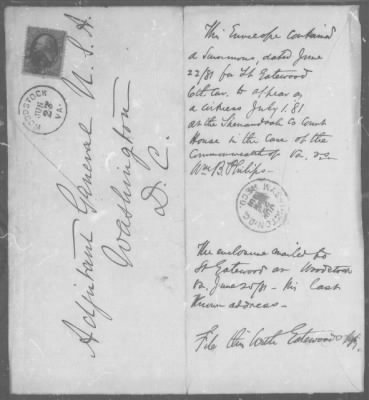 WOODSTOCK
JUN
22
VA.
Adjutant General U.S.A.
Washington
D.C.
This Envelope contained
a Summons, dated June
22/81 for Lt Gatewood
6th Cav. to appear as
a witness July 1. 81
at the Shenandoah Co Court
House in the case of the
Commonwealth of Va. vs
Wm B. Philips.
The enclosure mailed to
Lt Gatewood at Woodstock
Va. June 25/81 - his last
Known address -
File this with Gatewoods